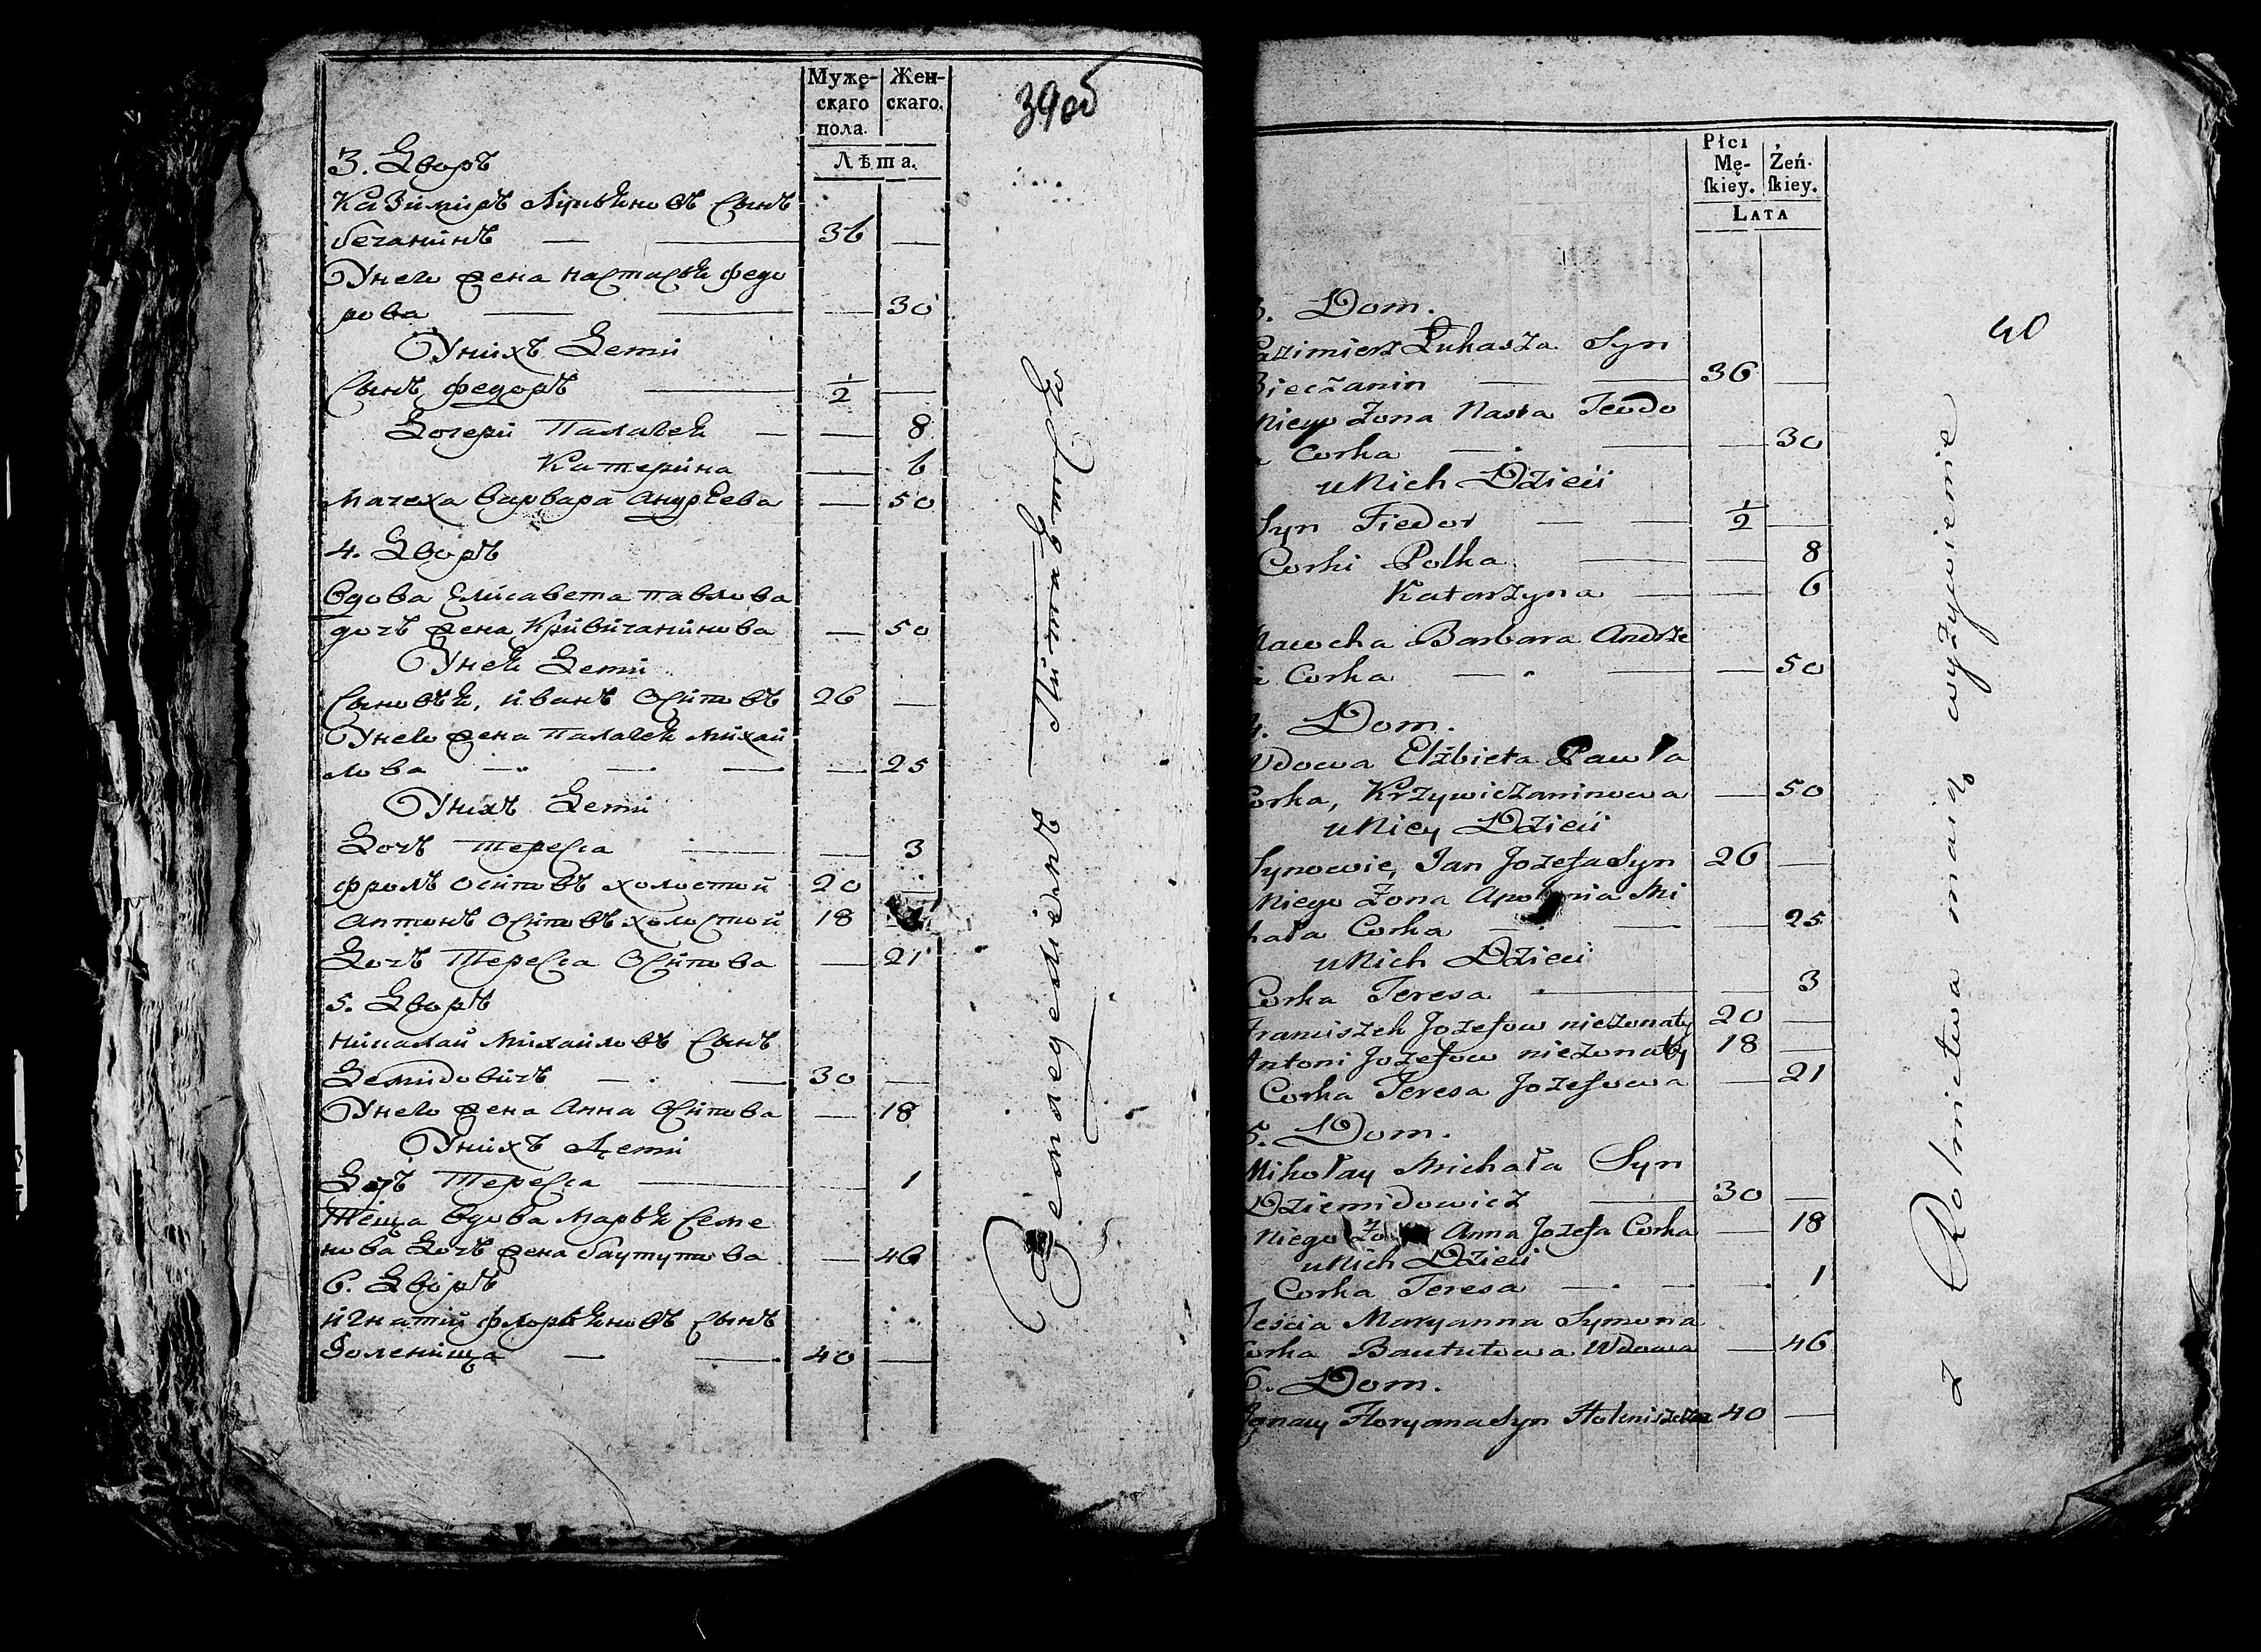 Муже-
скаго
пола.
Жен-
скаго.
Лѣта.
39об
3. Дворъ
Казимиръ Лукьяновъ сынъ
бечанинъ — — 36 —
У него жена Настасья Федо
рова — — — 30
У нихъ Дети
Сынъ, Федоръ — 1/2 —
Дочери Палагея — — 8
Катерина — 6
Мачеха Варвара Андреева — 50
4. Дворъ
Вдова Елисавета Павлова
дочь жена Кривичанинова — 50
У ней Дети
Сыновья, Иванъ Осиповъ 26 —
У него жена Палагея Михаи
лова — — — — 25
У нихъ Дети
Дочь Тереса — — 3
Осиповъ холостой 20 —
Антонъ Осиповъ холостой 18
Дочь Тереса Осипова — 21
5. Дворъ
Николай Михайловъ сынъ
Демидовичъ — — 30 —
У него жена Анна Осипова — 18
У нихъ Дети
Дочь Тереса — 1
Теща вдова Марья Семе
нова дочь жена Баутутова — 46
6. Дворъ
Игнатий Флорьяновъ сынъ
Голенища — — 40 —
Земледелиемъ
Płci
Mę-
ſkiey.
Żeń-
ſkiey.
LATA
40
3. Dom.
Kazimierz Łukasza Syn
Bieczanin — — 36 —
Niego Żona Nasta Teodo
a Corka — — — 30
u Nich Dzieci
Syn Fiedor — — 1/2 —
Corki Polka — — 8
Katarzyna — — 6
Macocha Barbara Andrze
i Corka — — — 50
4. Dom.
Wdowa Elżbieta Pawła
Corka, Krzywiczaninowa — 50
u Niey Dzieci
Synowie, Jan Jozefa Syn 26 —
Niego Żona Apolonia Mi
hała Corka — — — 25
u Nich Dzieci
Corka Teresa — — 3
Franciszek Jozefow nieżonaty 20 —
Antoni Jozefow nieżonaty 18 —
Corka Teresa Jozefowa — 21
5. Dom.
Mikołay Michała Syn
Dziemidowicz — 30 —
Niego Żona Anna Jozefa Corka — 18
u Nich Dzieci
Corka Teresa — — 1
Teścia Maryanna Symona
Corka Baututowa Wdowa — 46
6. Dom.
Ignacy Floryana Syn 40 —
z Rolnictwa maią wyżywienie